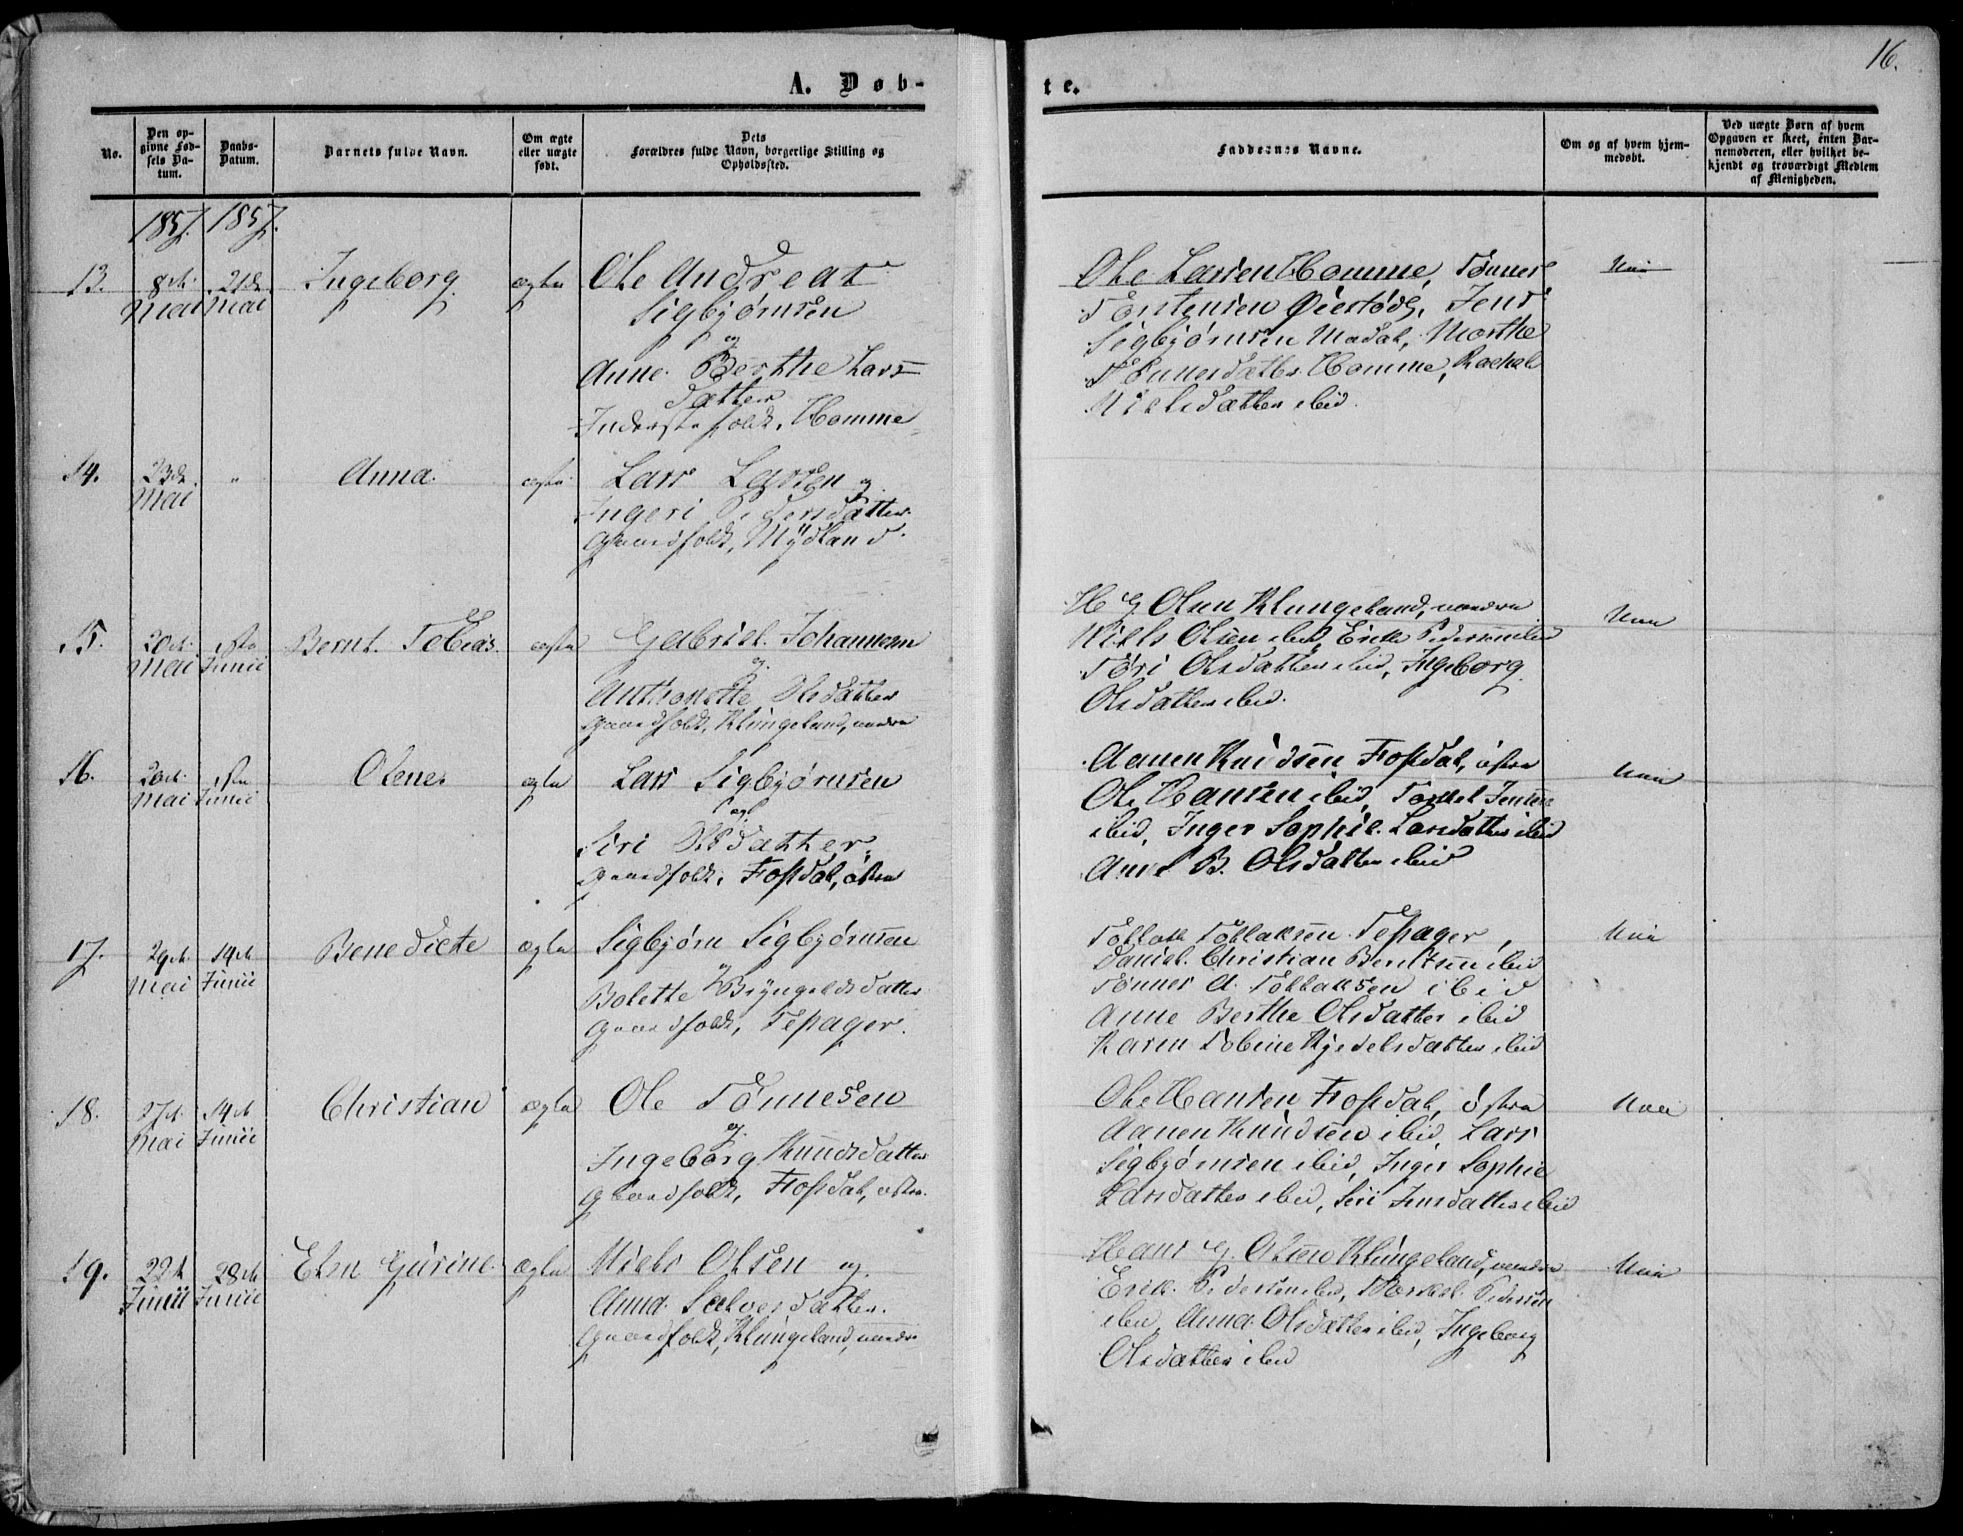 16.
A. Døb-
te.
No.
Den op-
givne Fød-
sels Da-
tum.
Daabs-
Datum.
Barnets fulde Navn.
Om ægte
eller uægte
født.
Dets
Forældres fulde Navn, borgerlige Stilling og
Opholdssted.
Faddernes Navne.
Om og af hvem hjem-
medøbt.
Ved uægte Børn af hvem
Opgaven er skeet, enten Bar-
nemoderen, eller hvilket be-
kjendt og troværdigt Medlem
af Menigheden.
1857. 1857.
13.
8de
Mai
21de
Mai
Ingeborg
ægte
Ole Andreas
Sigbjørnsen
og
Anne Berthe Lars
datter
Inderstefolk, Homme
Ole Larsen Homme, Tønnes
Torstensen Øiestøde, Jens
Sigbjørnsen Mødal, Marthe
Tønnesdatter Homme, Rachel
Nielsdatter ibid.
Nei
14.
23de
Mai
"
Anna
ægte
Lars Larsen og
Ingeri Pedersdatter
Gaardfolk, Mydland
15.
20de
Mai
1ste
Junii
Bernt Tobias
ægte
Gabriel Johannesen
og
Anthonette Olsdatter
Gaardfolk, Klungeland, nedre
H G Olsen Klungeland, nedre
Niels Olsen ibid, Erik Pedersen ibid
Tøri Olsdatter ibid, Ingeborg
Olsdatter ibid.
Nei
16.
20de
Mai
1ste
Junii
Olene
ægte
Lars Sigbjørnsen
og
Siri Olsdatter
Gaardfolk, Fosdal, østre
Aanen Knudsen Fosdal, østre
Ole Hansen ibid, Torkel Jensen
ibid, Inger Sophie Larsdatter ibid
Anne B. Olsdatter ibid
Nei
17.
29de
Mai
14de
Junii
Benedicte
ægte
Sigbjørn Sigbjørnsen
og
Bolette Bryngelsdatter
Gaardfolk, Tesager.
Tollak Tollaksen Tesager,
Daniel Christian Berntsen ibid
Tønnes A. Tollaksen ibid
Anne Berthe Olsdatter ibid
Karen Tobine Kjedelsdatter ibid
Nei
18.
27de
Mai
14de
Junii
Christian
ægte
Ole Tønnesen
og
Ingeborg Knudsdatter
Gaardfolk, Fosdal, østre.
Ole Hansen Fosdal, østre
Aanen Knudsen ibid, Lars
Sigbjørnsen ibid, Inger Sophie
Larsdatter ibid, Siri Jensdatter ibid
Nei
19.
22de
Junii
28de
Junii
Elen Gurine
ægte
Niels Olsen og
Anna Salvesdatter
Gaardfolk, Klungeland, nedre
Hans G. Olsen Klungeland, nedre
Erik Pedersen ibid, Torkel Pedersen
ibid, Anna Olsdatter ibid, Ingeborg
Olsdatter ibid
Nei